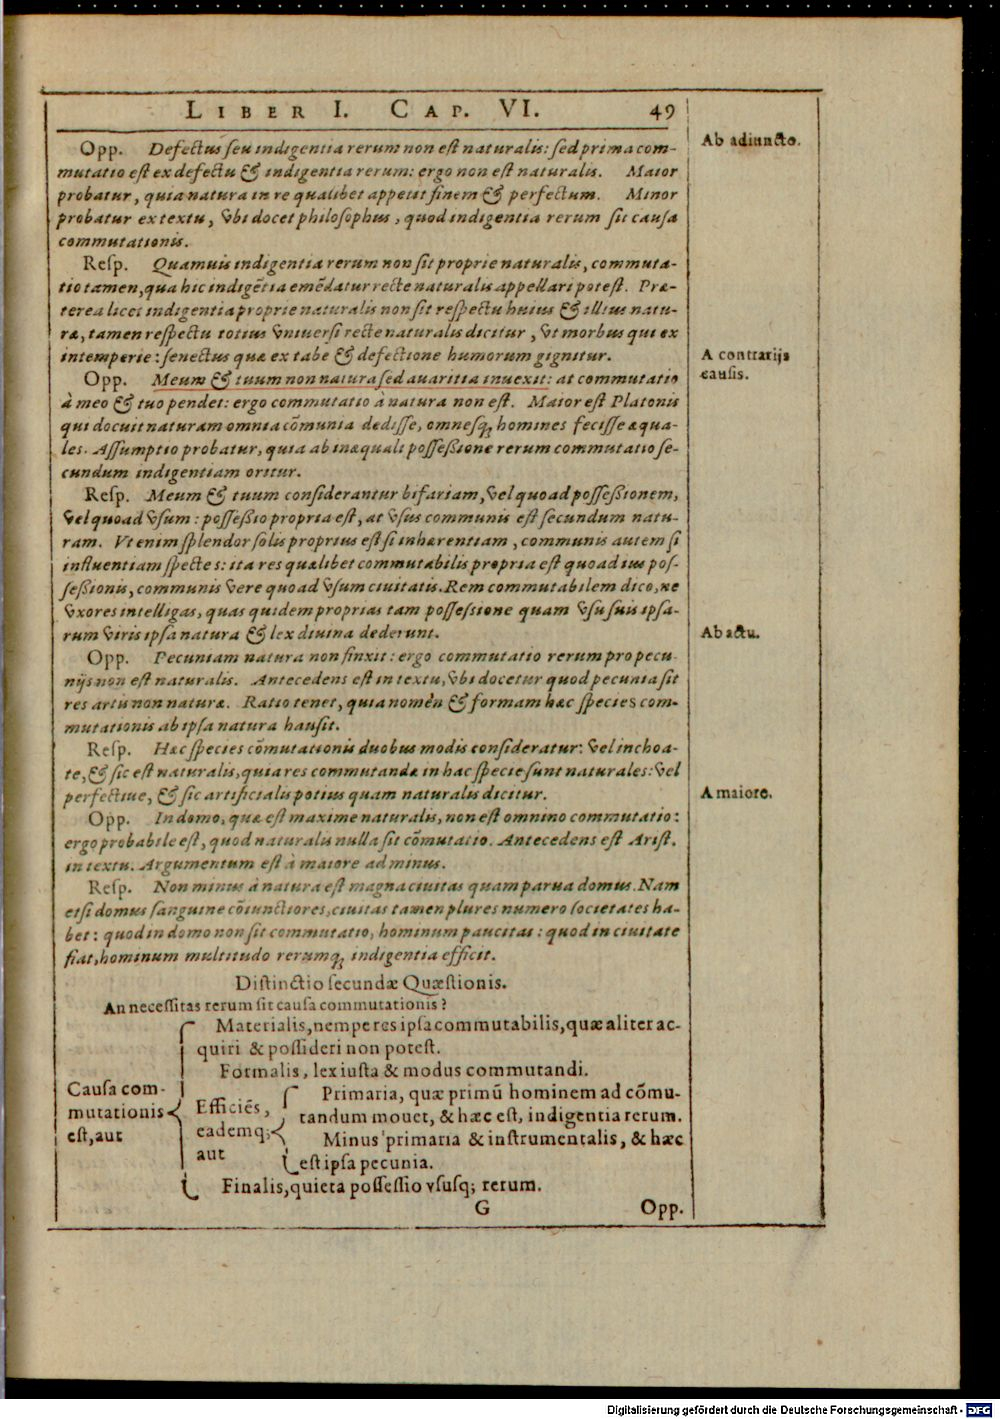 LIBER I. CAP. VI. 49
Opp. Defectus seu indigentia rerum non est naturalis: sed prima com-
mutatio est ex defectu & indigentia rerum: ergo non est naturalis. Maior
probatur, quia natura in re qualibet appetit finem & perfectum. Minor
probatur ex textu, vbi docet philosophus, quod indigentia rerum sit causa
commutationis.
Ab adiuncto.
Resp. Quamuis indigentia rerum non sit proprie naturalis, commuta-
tio tamen, qua hic indigẽtia emẽdatur recte naturalis appellari potest. Præ-
terea licet indigentia proprie naturalis non sit respectu huius & illius natu-
ræ, tamen respectu totius vniuersi recte naturalis dicitur, vt morbus qui ex
intemperie: senectus quæ ex tabe & defectione humorum gignitur.
Opp. Meum & tuum non natura sed auaritia inuexit: at commutatio
à meo & tuo pendet: ergo commutatio à natura non est. Maior est Platonis
qui docuit naturam omnia cõmunia dedisse, omnesq; homines fecisse æqua-
les. Assumptio probatur, quia ab inæquali possessione rerum commutatio se-
cundum indigentiam oritur.
A contrarijs
causis.
Resp. Meum & tuum considerantur bifariam, vel quo ad possessionem,
vel quoad vsum: possessio propria est, at vsus communis est secundum natu-
ram. Vt enim splendor solis proprius est si inhærentiam, communis autem si
influentiam spectes: ita res quælibet commutabilis propria est quo ad ius pos-
sessionis, communis vere quo ad vsum ciuitatis. Rem commutabilem dico, ne
vxores intelligas, quas quidem proprias tam possessione quam vsu suis ipsa-
rum viris ipsa natura & lex diuina dederunt.
Opp. Pecuniam natura non finxit: ergo commutatio rerum pro pecu-
nijs non est naturalis. Antecedens est in textu, vbi docetur quod pecunia sit
res artis non naturæ. Ratio tenet, quia nomẽn & formam hæc species com-
mutationis ab ipsa natura hausit.
Ab actu.
Resp. Hæc species cõmutationis duobus modis consideratur: vel inchoa-
te, & sic est naturalis, quia res commutandæ in hac specie sunt naturales: vel
perfectiue, & sic artificialis potius quam naturalis dicitur.
Opp. In domo, quæ est maxime naturalis, non est omnino commutatio:
ergo probabile est, quod naturalis nulla sit cõmutatio. Antecedens est Arist.
in textu. Argumentum est à maiore ad minus.
A maiore.
Resp. Non minus à natura est magna ciuitas quam parua domus. Nam
etsi domus sanguine cõiunctiores, ciuitas tamen plures numero societates ha-
bet: quod in domo non sit commutatio, hominum paucitas: quod in ciuitate
fiat, hominum multitudo rerumq; indigentia efficit.
Distinctio secundæ Quæstionis.
An necessitas rerum sit causa commutationis?
Causa com-
mutationis
est, aut
Materialis, nempe res ipsa commutabilis, quæ aliter ac-
quiri & possideri non potest.
Formalis, lex iusta & modus commutandi.
Efficiẽs,
eademq;
aut
Primaria, quæ primũ hominem ad cõmu-
tandum mouet, & hæc est, indigentia rerum.
Minus primaria & instrumentalis, & hæc
est ipsa pecunia.
Finalis, quieta possessio vsusq; rerum.
G Opp.
Digitalisierung gefördert durch die Deutsche Forschungsgemeinschaft - DFG